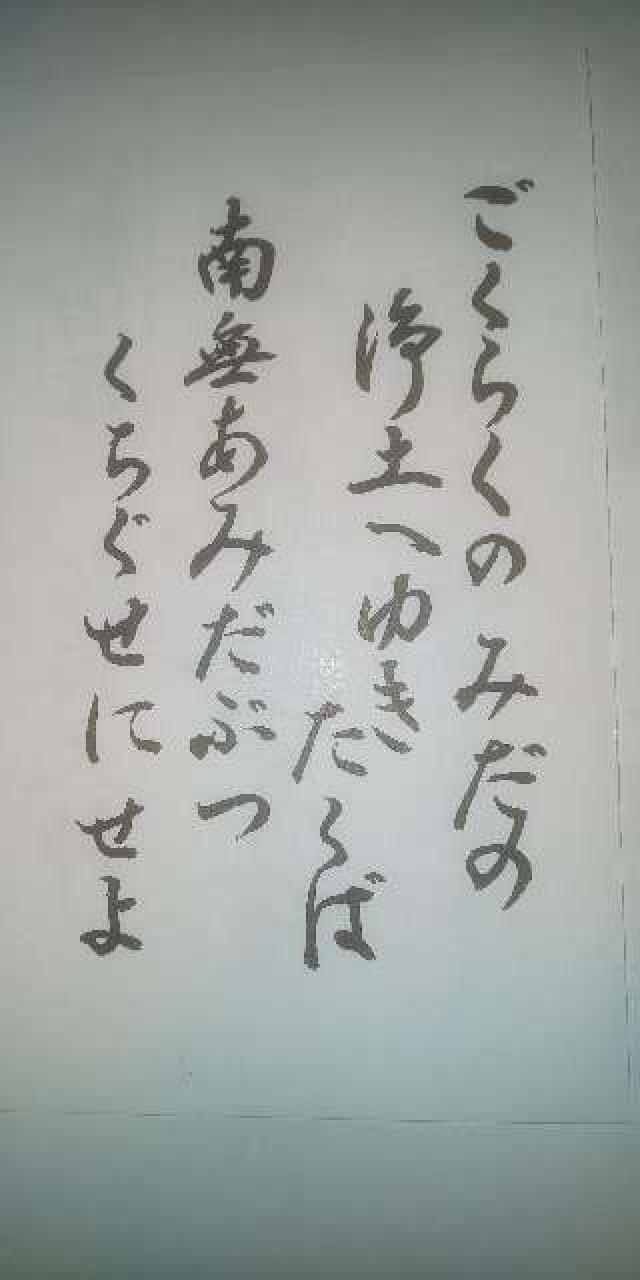 ごくらくの みだの
浄土へゆき
たくば
南無あみだぶつ
くちぐせに せよ